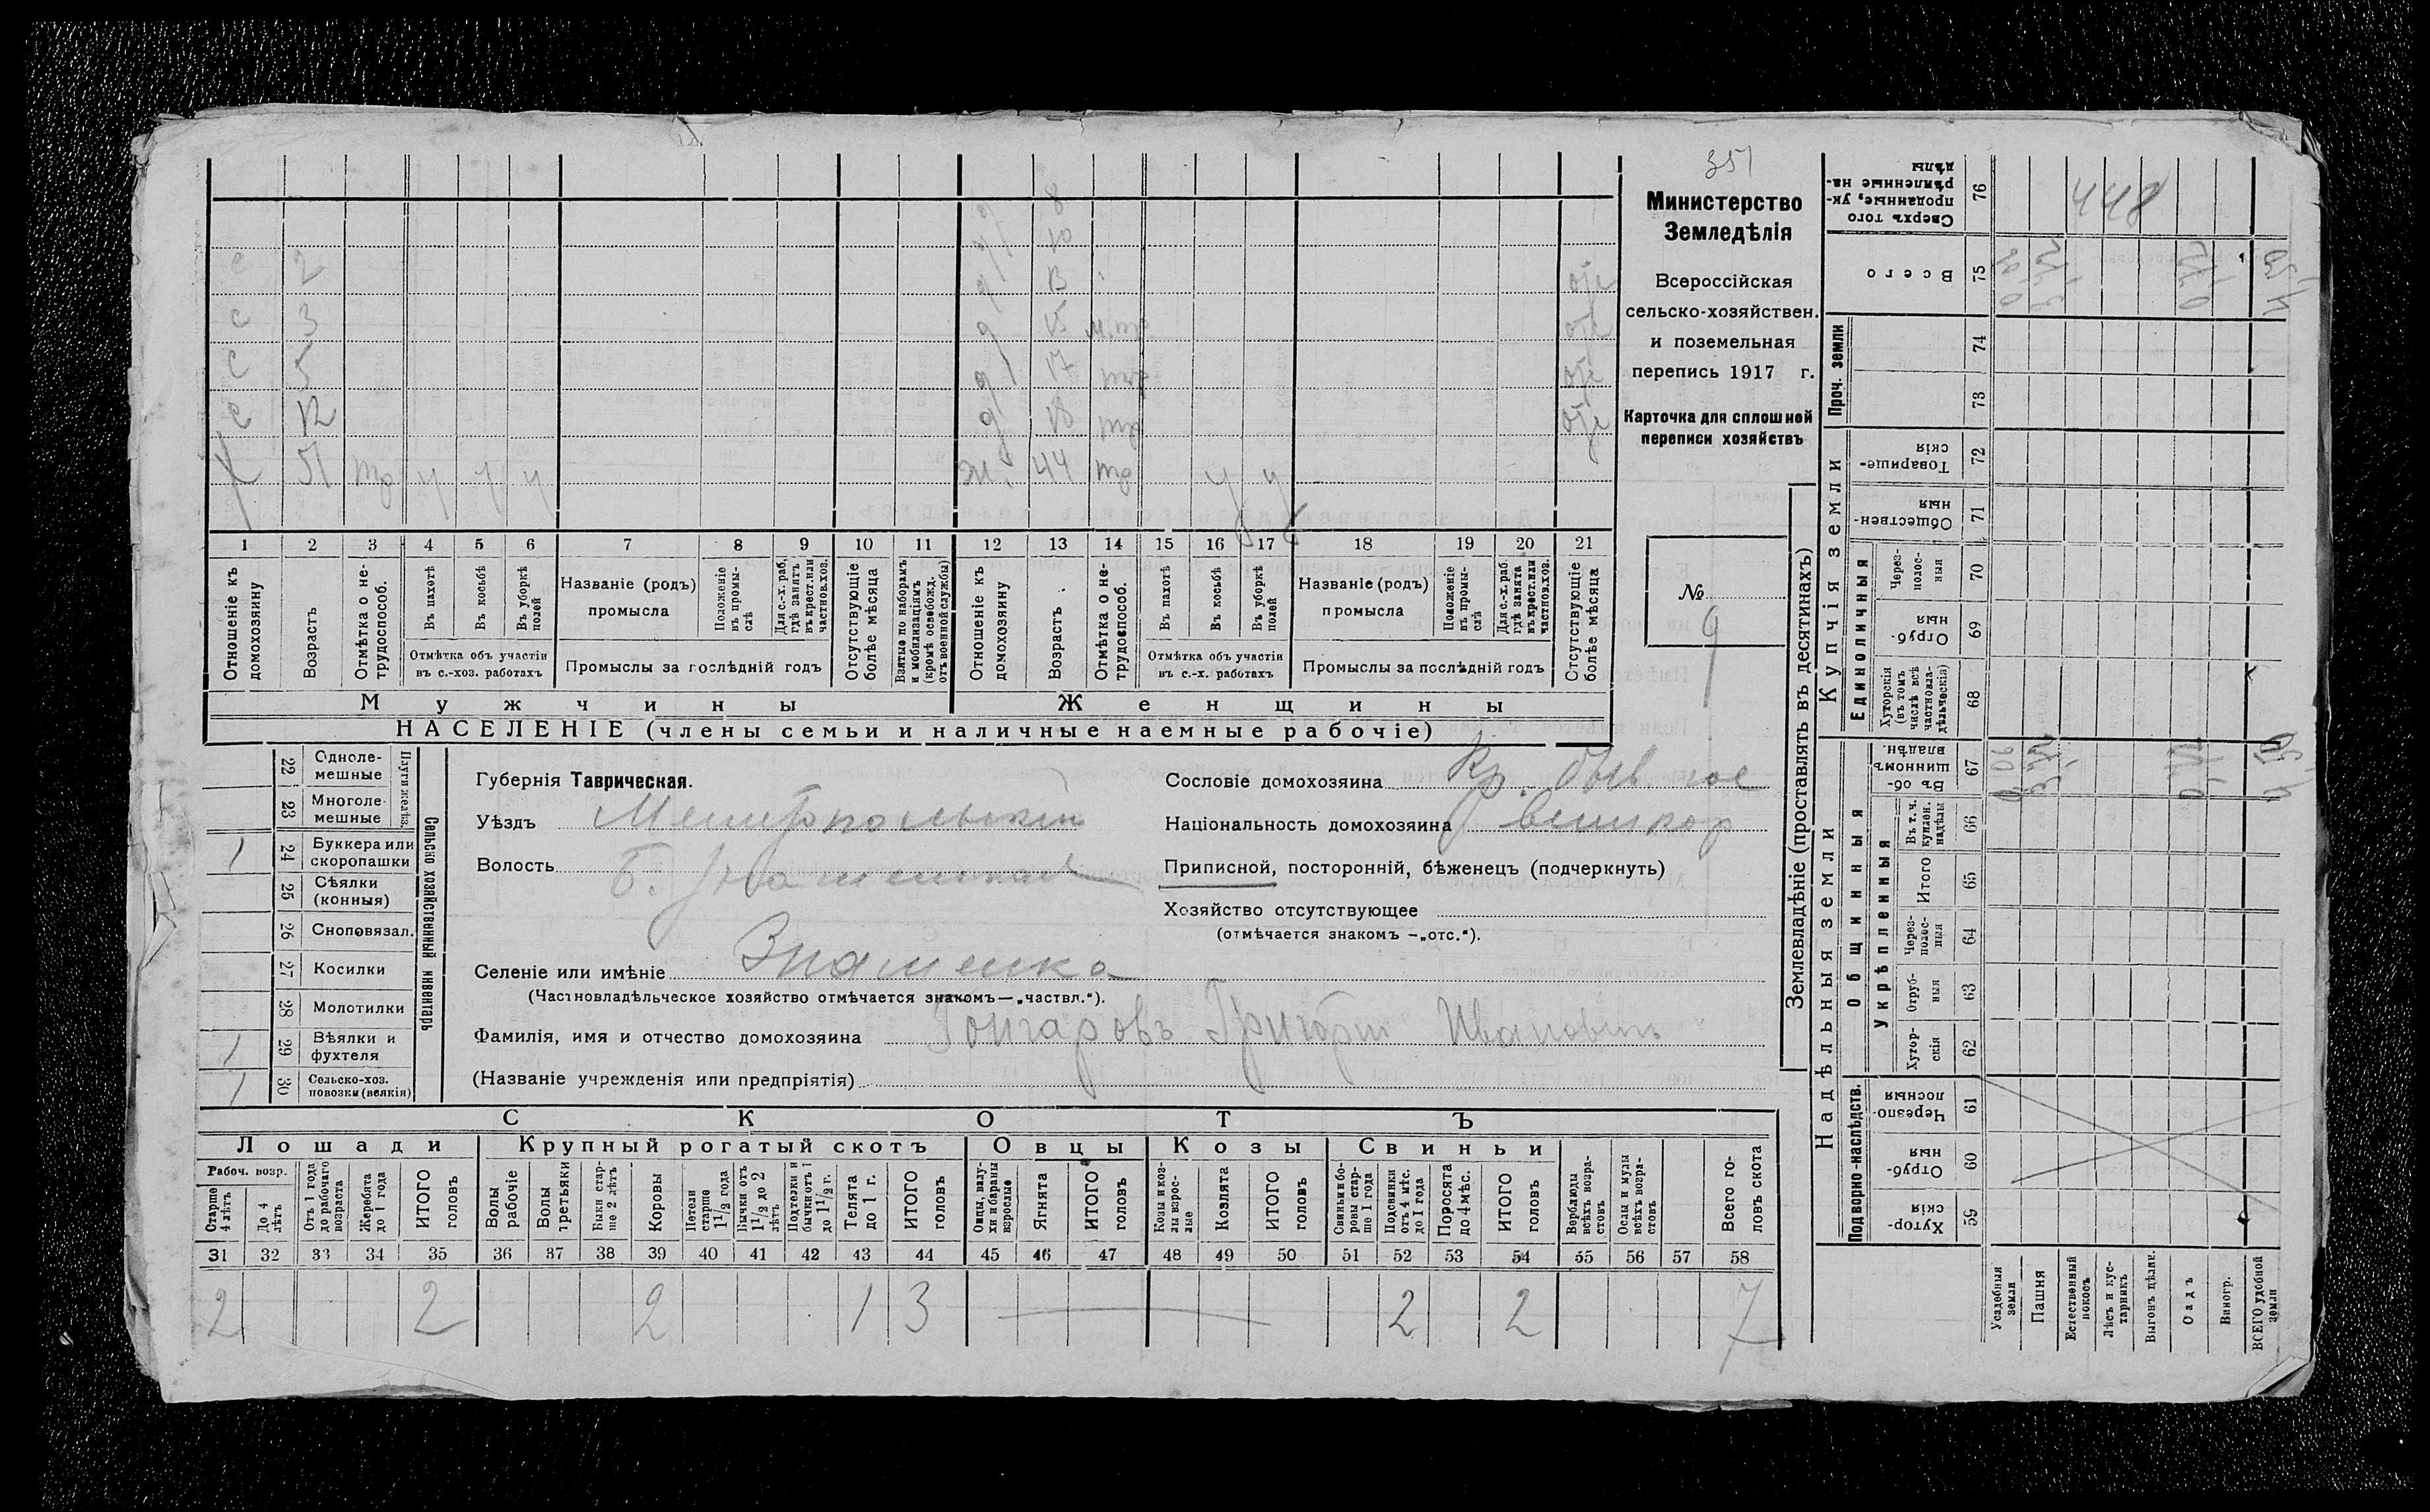 351
Министерство
Земледѣлія
Всероссійская
сельско-хозяйствен.
и поземельная
перепись 1917 г.
Карточка для сплошной
переписи хозяйствъ
№
9
8
10
с 2 д 13
с 3 д 15 оје
с 5 д 17 тр оје
с 12 д 18 тр оје
Х 51 тр ч ч ч ж. 44 тр ч ч
1 2 3 4 5 6 7 8 9 10 11 12 13 14 15 16 17 18 19 20 21
Отношеніе къ домохозяину
Возрастъ
Отмѣтка о не-трудоспособ.
Въ пахотѣ
Въ косьбѣ
Въ уборкѣ полей
Отмѣтка объ участіи въ с.-хоз. работахъ
Названіе (родъ) промысла
Положеніе въ промы-слѣ
Для с.-х. раб. гдѣ занятъ въ крест. или частнов. хоз.
Промыслы за послѣдній годъ
Отсутствующіе болѣе мѣсяца
Взятые по наборамъ и мобилизаціямъ (кромѣ освобожд. отъ военной службы)
Отношеніе къ домохозяину
Возрастъ
Отмѣтка о не-трудоспособ.
Въ пахотѣ
Въ косьбѣ
Въ уборкѣ полей
Отмѣтка объ участіи въ с.-х. работахъ
Названіе (родъ) промысла
Положеніе въ промы-слѣ
Для с.-х. раб. гдѣ занята въ крест. или частнов. хоз.
Промыслы за послѣдній годъ
Отсутствующіе болѣе мѣсяца
Мужчины Женщины
НАСЕЛЕНІЕ (члены семьи и наличные наемные рабочіе)
Сельско хозяйственный инвентарь
Плуги желѣз.
22 Одноле-мешные
23 Многоле-мешные
1 24 Буккера или скоропашки
25 Сѣялки (конныя)
26 Сноповязал.
27 Косилки
28 Молотилки
1 29 Вѣялки и фухтеля
1 30 Сельско-хоз. повозки (всякія)
Губернія Таврическая.
Уѣздъ Мелитопольскій
Волость Б. Знаменская
Селеніе или имѣніе Знаменка
(Частновладѣльческое хозяйство отмѣчается знакомъ—„частвл.“).
Фамилія, имя и отчество домохозяина Гончаровъ Григорій Ивановичъ
(Названіе учрежденія или предпріятія)
Сословіе домохозяина Кр. быв. гос
Національность домохозяина великор
Приписной, посторонній, бѣженецъ (подчеркнуть)
Хозяйство отсутствующее
(отмѣчается знакомъ —„отс.“).
СКОТЪ
Лошади Крупный рогатый скотъ Овцы Козы Свиньи
Рабоч. возр.
Старше 4 лѣтъ
До 4 лѣтъ
Отъ 1 года до рабочаго возраста
Жеребята до 1 года
ИТОГО головъ
Волы рабочіе
Волы третьяки
Быки стар-ше 2 лѣтъ
Коровы
Нетели старше 1 1/2 года
Бычки отъ 1 1/2 до 2 лѣтъ
Подтелки и бычки отъ 1 до 1 1/2 г.
Телята до 1 г.
ИТОГО головъ
Овцы, валу-хи и бараны взрослые
Ягнята
ИТОГО головъ
Козы и коз-лы взрос-лые
Козлята
ИТОГО головъ
Свиньи и бо-ровы стар-ше 1 года
Подсвинки отъ 4 мѣс. до 1 года
Поросята до 4 мѣс.
ИТОГО головъ
Верблюды всѣхъ возра-стовъ
Ослы и мулы всѣхъ возра-стовъ
Всего го-ловъ скота
31 32 33 34 35 36 37 38 39 40 41 42 43 44 45 46 47 48 49 50 51 52 53 54 55 56 57 58
2 2 2 1 3 2 2 7
Землевладѣніе (проставлять въ десятинахъ)
Надѣльныя земли
Купчія земли
Проч. земли
Подворно-наслѣдств.
Общинныя
Укрѣпленныя
Единоличныя
Сверхъ того проданные, ук-рѣпленные на-дѣлы 76
448
Всего 75
74
73
Товарище-скія 72
Обществен-ныя 71
Через-полос-ныя 70
Отруб-ныя 69
Хуторскія (въ томъ числѣ всѣ частновла-дѣльческія) 68
Въ об-щинномъ владѣн. 67
Въ т. ч. куплен. надѣлы 66
Итого 65
Через-полос-ныя 64
Отруб-ныя 63
Хутор-скія 62
Черезпо-лосныя 61
Отруб-ныя 60
Хутор-скія 59
Усадебныя земли
Пашня
Естественный покосъ
Лѣсъ и кус-тарникъ
Выгонъ цѣлин.
Садъ
Виногр.
ВСЕГО удобной земли